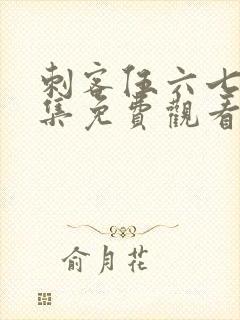 刺客伍六七
集免費觀看
俞月花